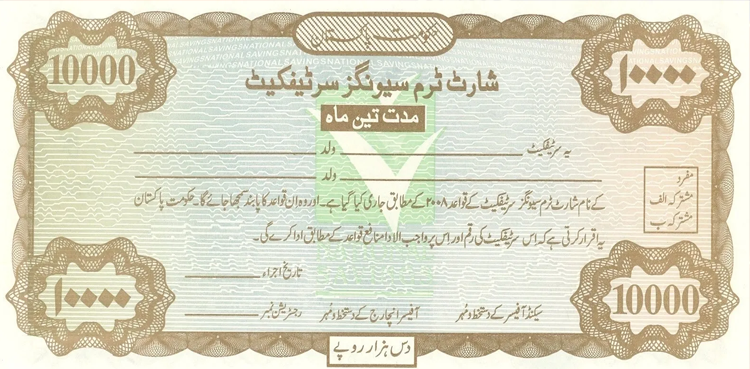 حکومت پاکستان
NATIONAL SAVINGS NATIONAL SAVINGS NATIONAL SAVINGS
10000
۱۰۰۰۰
شارٹ ٹرم سیونگز سرٹیفکیٹ
مدت تین ماہ
یہ سرٹیفکیٹ ولد
ولد
مفرد
مشترکہ الف
مشترکہ ب
کے نام شارٹ ٹرم سیونگز سرٹیفکیٹ کے قواعد ۲۰۰۸ کے مطابق جاری کیا گیا ہے۔ اور وہ ان قواعد کا پابند سمجھا جائے گا۔ حکومت پاکستان
یہ اقرار کرتی ہے کہ اس سرٹیفکیٹ کی رقم اور اس پر واجب الادا منافع قواعد کے مطابق ادا کرے گی۔
تاریخ اجراء
سیکنڈ آفیسر کے دستخط و مُہر
آفیسر انچارج کے دستخط و مُہر
رجسٹریشن نمبر
۱۰۰۰۰
10000
دس ہزار روپے